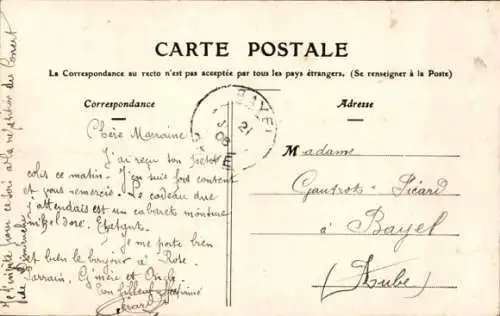 CARTE POSTALE
La Correspondance au recto n'est pas acceptée par tous les pays étrangers. (Se renseigner à la Poste)
Correspondance
Adresse
BAYEL
21
08
Chère Marraine
J'ai reçu ton
colis ce matin. J'en suis fort content
et vous remercie. Le cadeau que
j'attendais est un cabaret monture
nickel doré. Elegant.
Je me porte bien
et bien le bonjour à Rose
Parrain, et
Ton filleul
Gérard
Madame
Gautrot-Sicard
à Bayel
(Aube)
pour ce soir à la répétition du Concert